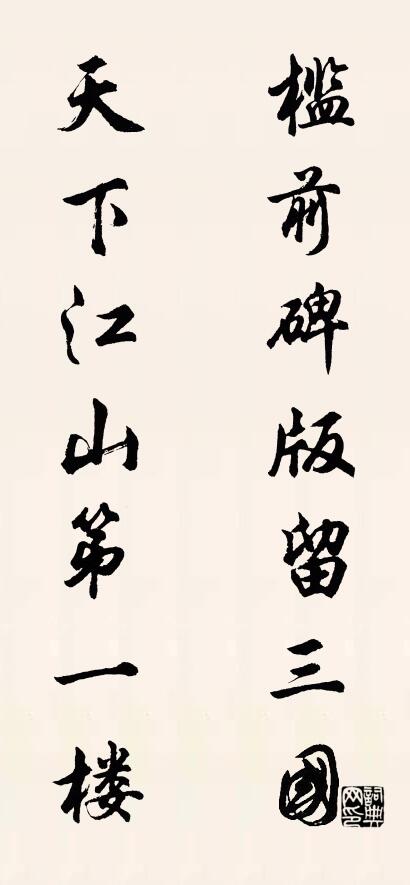 槛前碑版留三國
天下江山第一楼
詞典网印